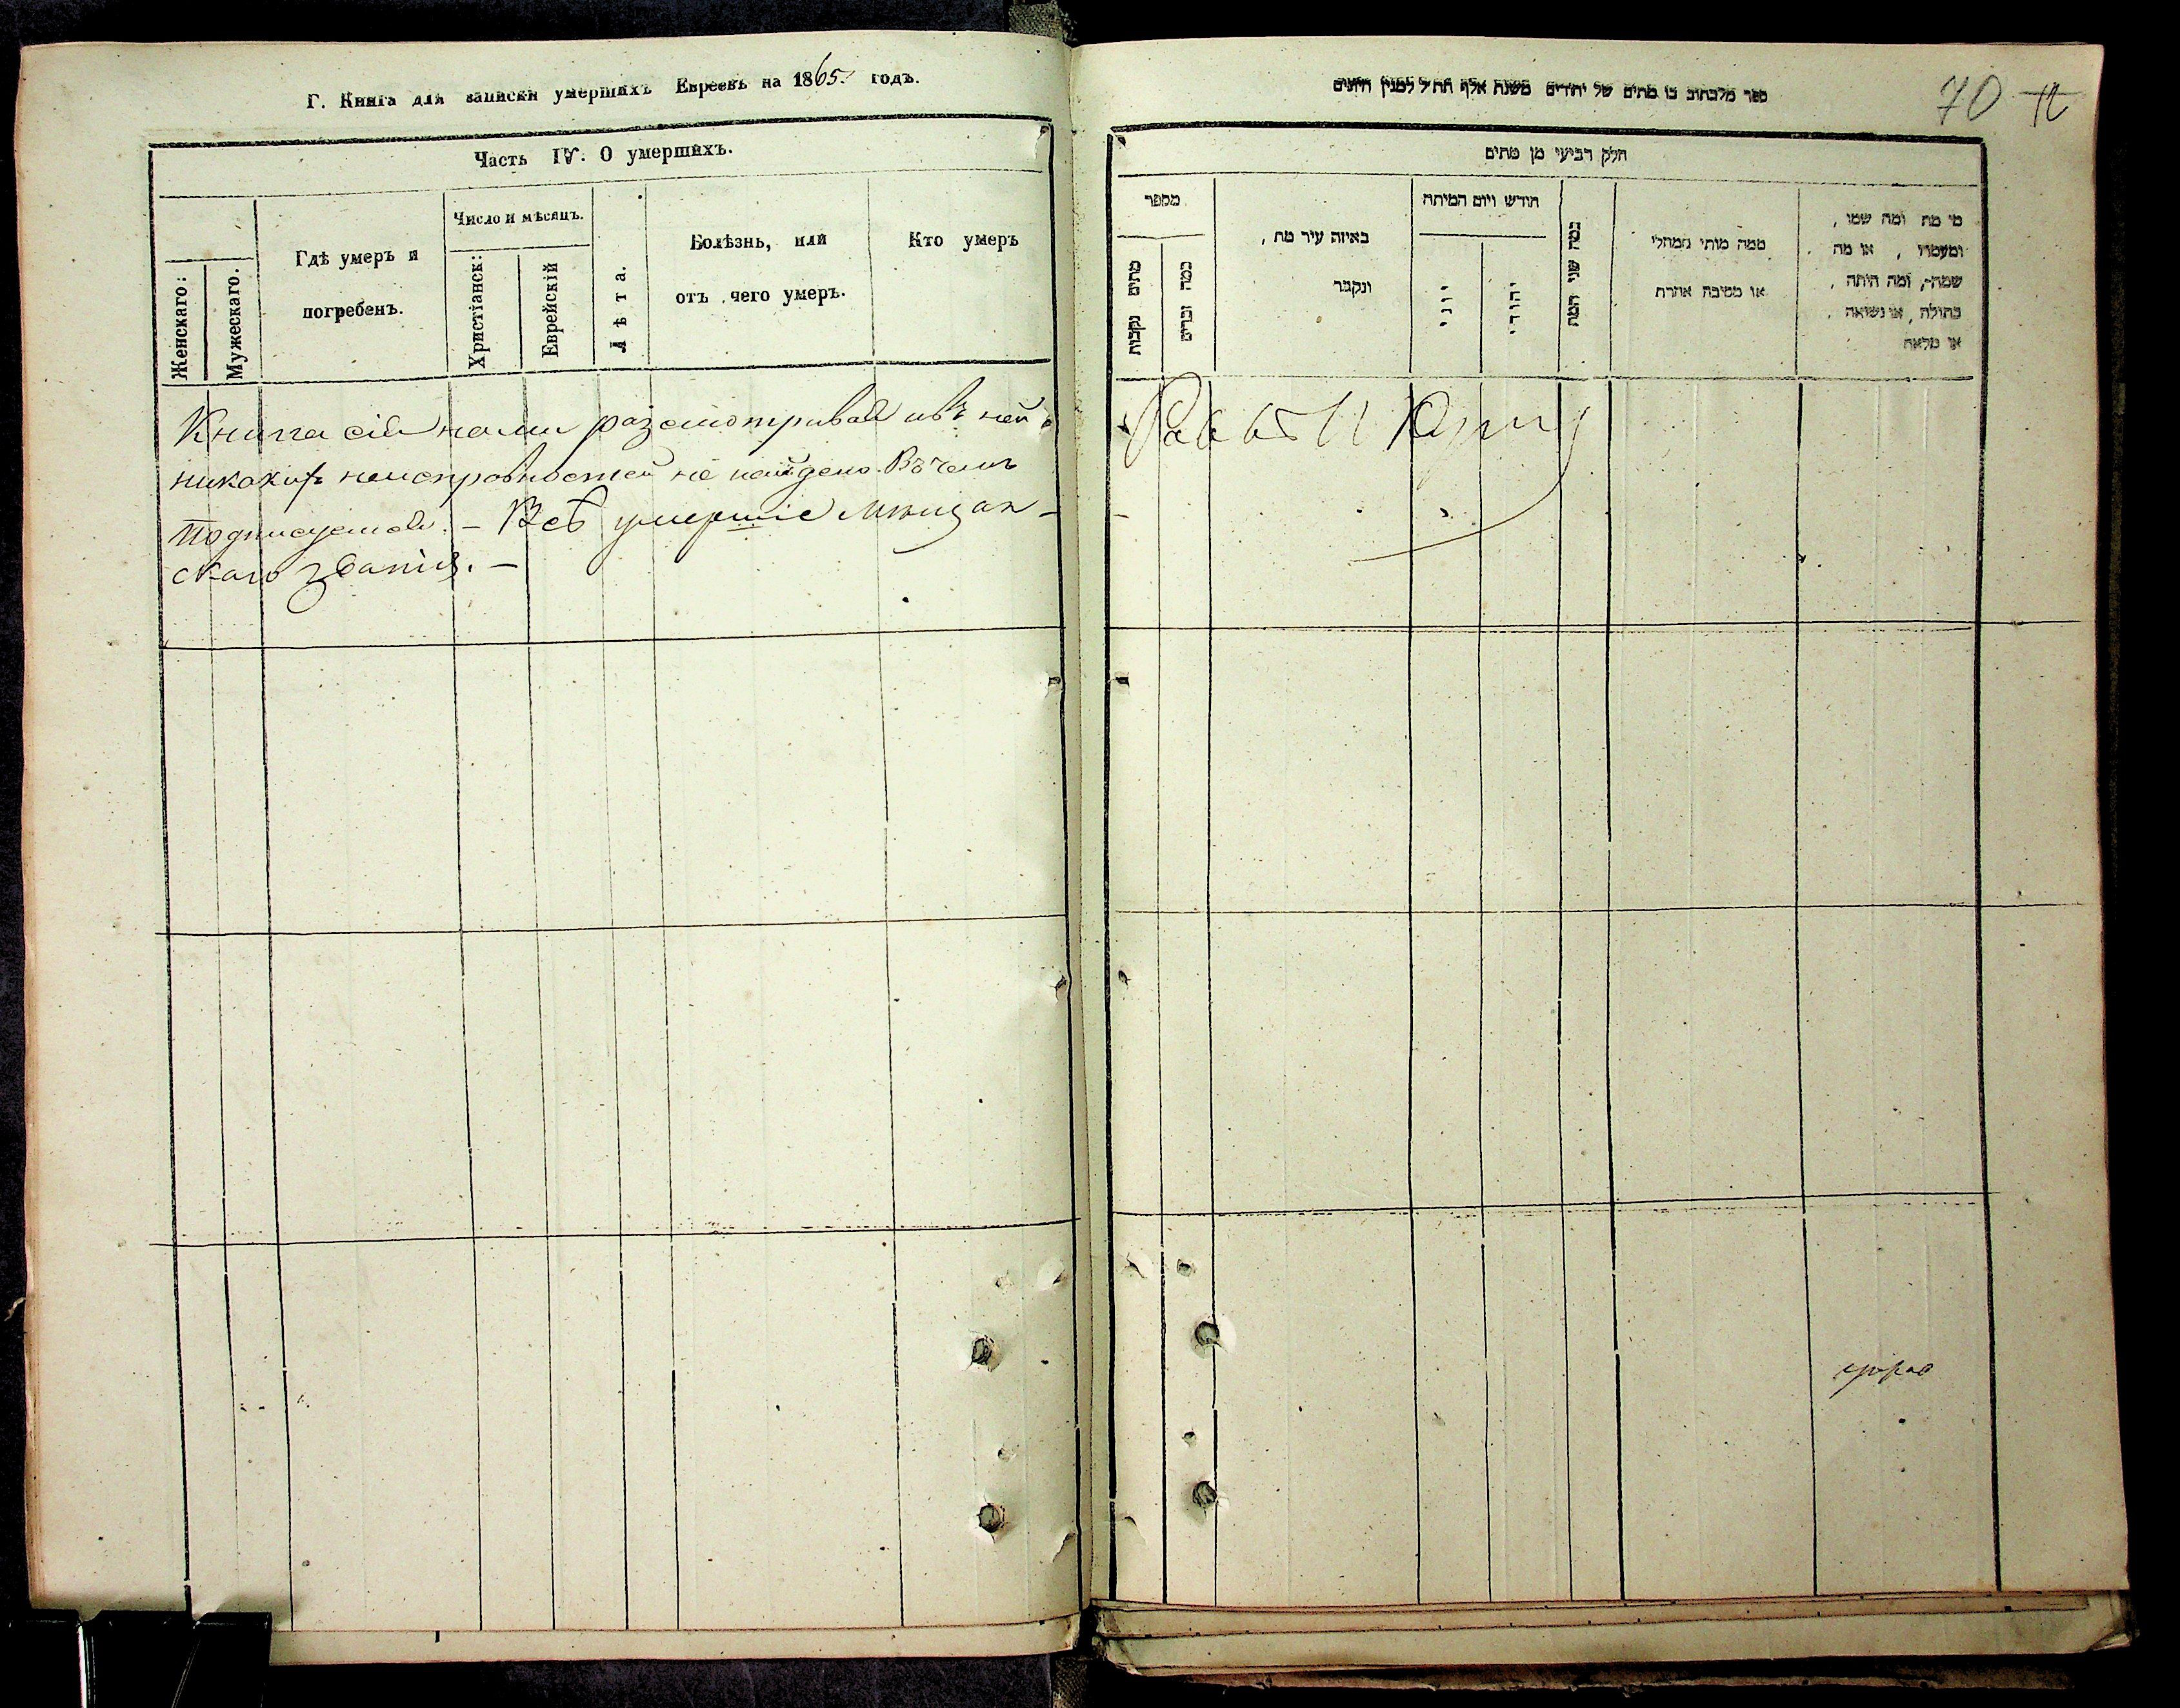 Г. Книга для записки умершихъ Евреевъ на 1865. годъ.
Часть IV. О умершихъ.
Женскаго:
Мужескаго.
Гдѣ умеръ и
погребенъ.
Число и мѣсяцъ.
Христіанск:
Еврейскій
Лѣта.
Болѣзнь, или
отъ чего умеръ.
Кто умеръ
Книга сія нами разсмотривана и въ ней
никакихъ неисправностей не найдено. Въ чемъ
подписуемся. – Всѣ умершіе мѣщан-
скаго званія. –
70
ספר מלכתוב בו מתים של יהודים משנת אלף תת״ל למנין היונים
חלק רביעי מן מתים
מספר
מתים נקבות
כמה זכרים
באיזה עיר מת,
ונקבר
חודש ויום המיתה
יוני
יהודי
כמה שני המת
ממה מותי ממחלי
או מסיבה אחרת
מי מת ומה שמו,
ומעמדו, או מה
שמה, ומה היתה,
בתולה, או נשואה
או מלאה